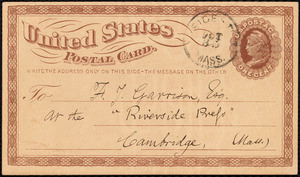 United States
POSTAL CARD.
WRITE THE ADDRESS ONLY ON THIS SIDE-THE MESSAGE ON THE OTHER
OCT
MASS.
U.S. POSTAGE
ONE CENT
To F. J. Garrison, Esq.
At the "Riverside Press"
Cambridge,
(Mass.)